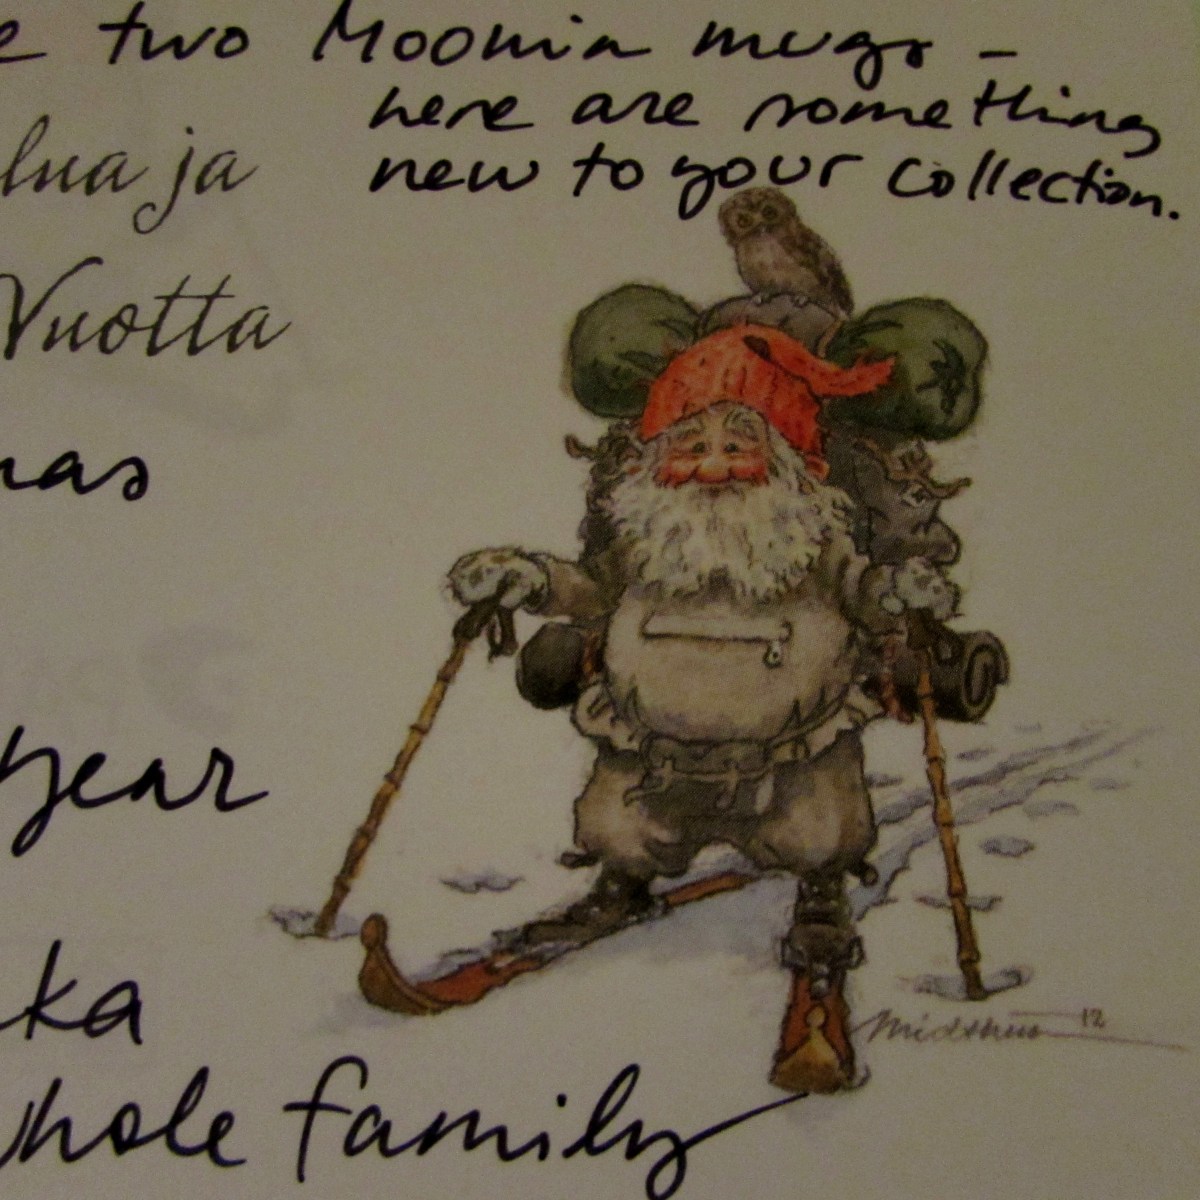 e two Moomin mugs –
here are something
new to your collection.
lua ja
Vuotta
mas
year
ka
whole family
12